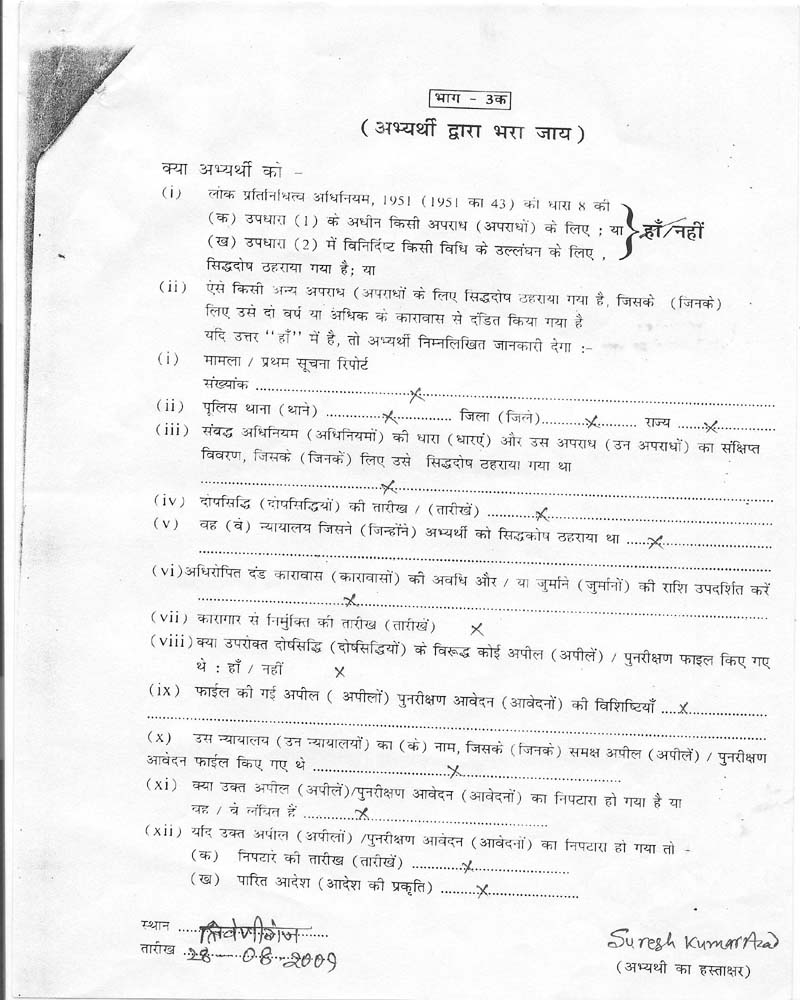 भाग - 3क
(अभ्यर्थी द्वारा भरा जाय)
क्या अभ्यर्थी को -
(i) लोक प्रतिनिधित्व अधिनियम, 1951 (1951 का 43) की धारा 8 की
(क) उपधारा (1) के अधीन किसी अपराध (अपराधों) के लिए ; या
(ख) उपधारा (2) में विनिर्दिष्ट किसी विधि के उल्लंघन के लिए ,
हाँ/नहीं
सिद्धदोष ठहराया गया है; या
(ii) ऐसे किसी अन्य अपराध (अपराधों के लिए सिद्धदोष ठहराया गया है, जिसके (जिनके)
लिए उसे दो वर्ष या अधिक के कारावास से दंडित किया गया है
यदि उत्तर "हाँ" में है, तो अभ्यर्थी निम्नलिखित जानकारी देगा :-
(i) मामला / प्रथम सूचना रिपोर्ट
संख्यांक ..........x..........
(ii) पुलिस थाना (थाने) ..........x.......... जिला (जिले)..........x.......... राज्य ..........x..........
(iii) संबद्ध अधिनियम (अधिनियमों) की धारा (धारएं) और उस अपराध (उन अपराधों) का संक्षिप्त
विवरण, जिसके (जिनकें) लिए उसे सिद्धदोष ठहराया गया था
..........x..........
(iv) दोषसिद्धि (दोषसिद्धियों) की तारीख / (तारीखें) ..........x..........
(v) वह (वे) न्यायालय जिसने (जिन्होंने) अभ्यर्थी को सिद्धकोष ठहराया था ..........x..........
(vi) अधिरोपित दंड कारावास (कारावासों) की अवधि और / या जुर्माने (जुर्मानों) की राशि उपदर्शित करें
..........x..........
(vii) कारागार से निर्मुक्ति की तारीख (तारीखें) x
(viii) क्या उपरोक्त दोषसिद्धि (दोषसिद्धियों) के विरूद्ध कोई अपील (अपीलें) / पुनरीक्षण फाइल किए गए
थे : हाँ / नहीं x
(ix) फाईल की गई अपील ( अपीलों) पुनरीक्षण आवेदन (आवेदनों) की विशिष्टियाँ ..........x..........
(x) उस न्यायालय (उन न्यायालयों) का (के) नाम, जिसके (जिनके) समक्ष अपील (अपीलें) / पुनरीक्षण
आवेदन फाईल किए गए थे ..........x..........
(xi) क्या उक्त अपील (अपीलें)/पुनरीक्षण आवेदन (आवेदनों) का निपटारा हो गया है या
वह / वे लंबित हैं ..........x..........
(xii) यदि उक्त अपील (अपीलों) /पुनरीक्षण आवेदन (आवेदनों) का निपटारा हो गया तो -
(क) निपटारे की तारीख (तारीखें) ..........x..........
(ख) पारित आदेश (आदेश की प्रकृति) ..........x..........
स्थान ..... त्रिवेणीगंज
तारीख ..... 28-08-2009
Suresh Kumar Azad
(अभ्यथी का हस्ताक्षर)